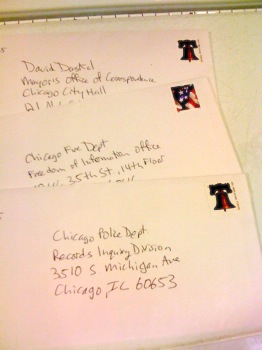 David
Mayor's Office of Correspondence
Chicago City Hall
121 N
Chicago Fire Dept
Freedom of Information Office
35th St., 14th Floor
Chicago Police Dept
Records Inquiry Division
3510 S Michigan Ave
Chicago, IL 60653